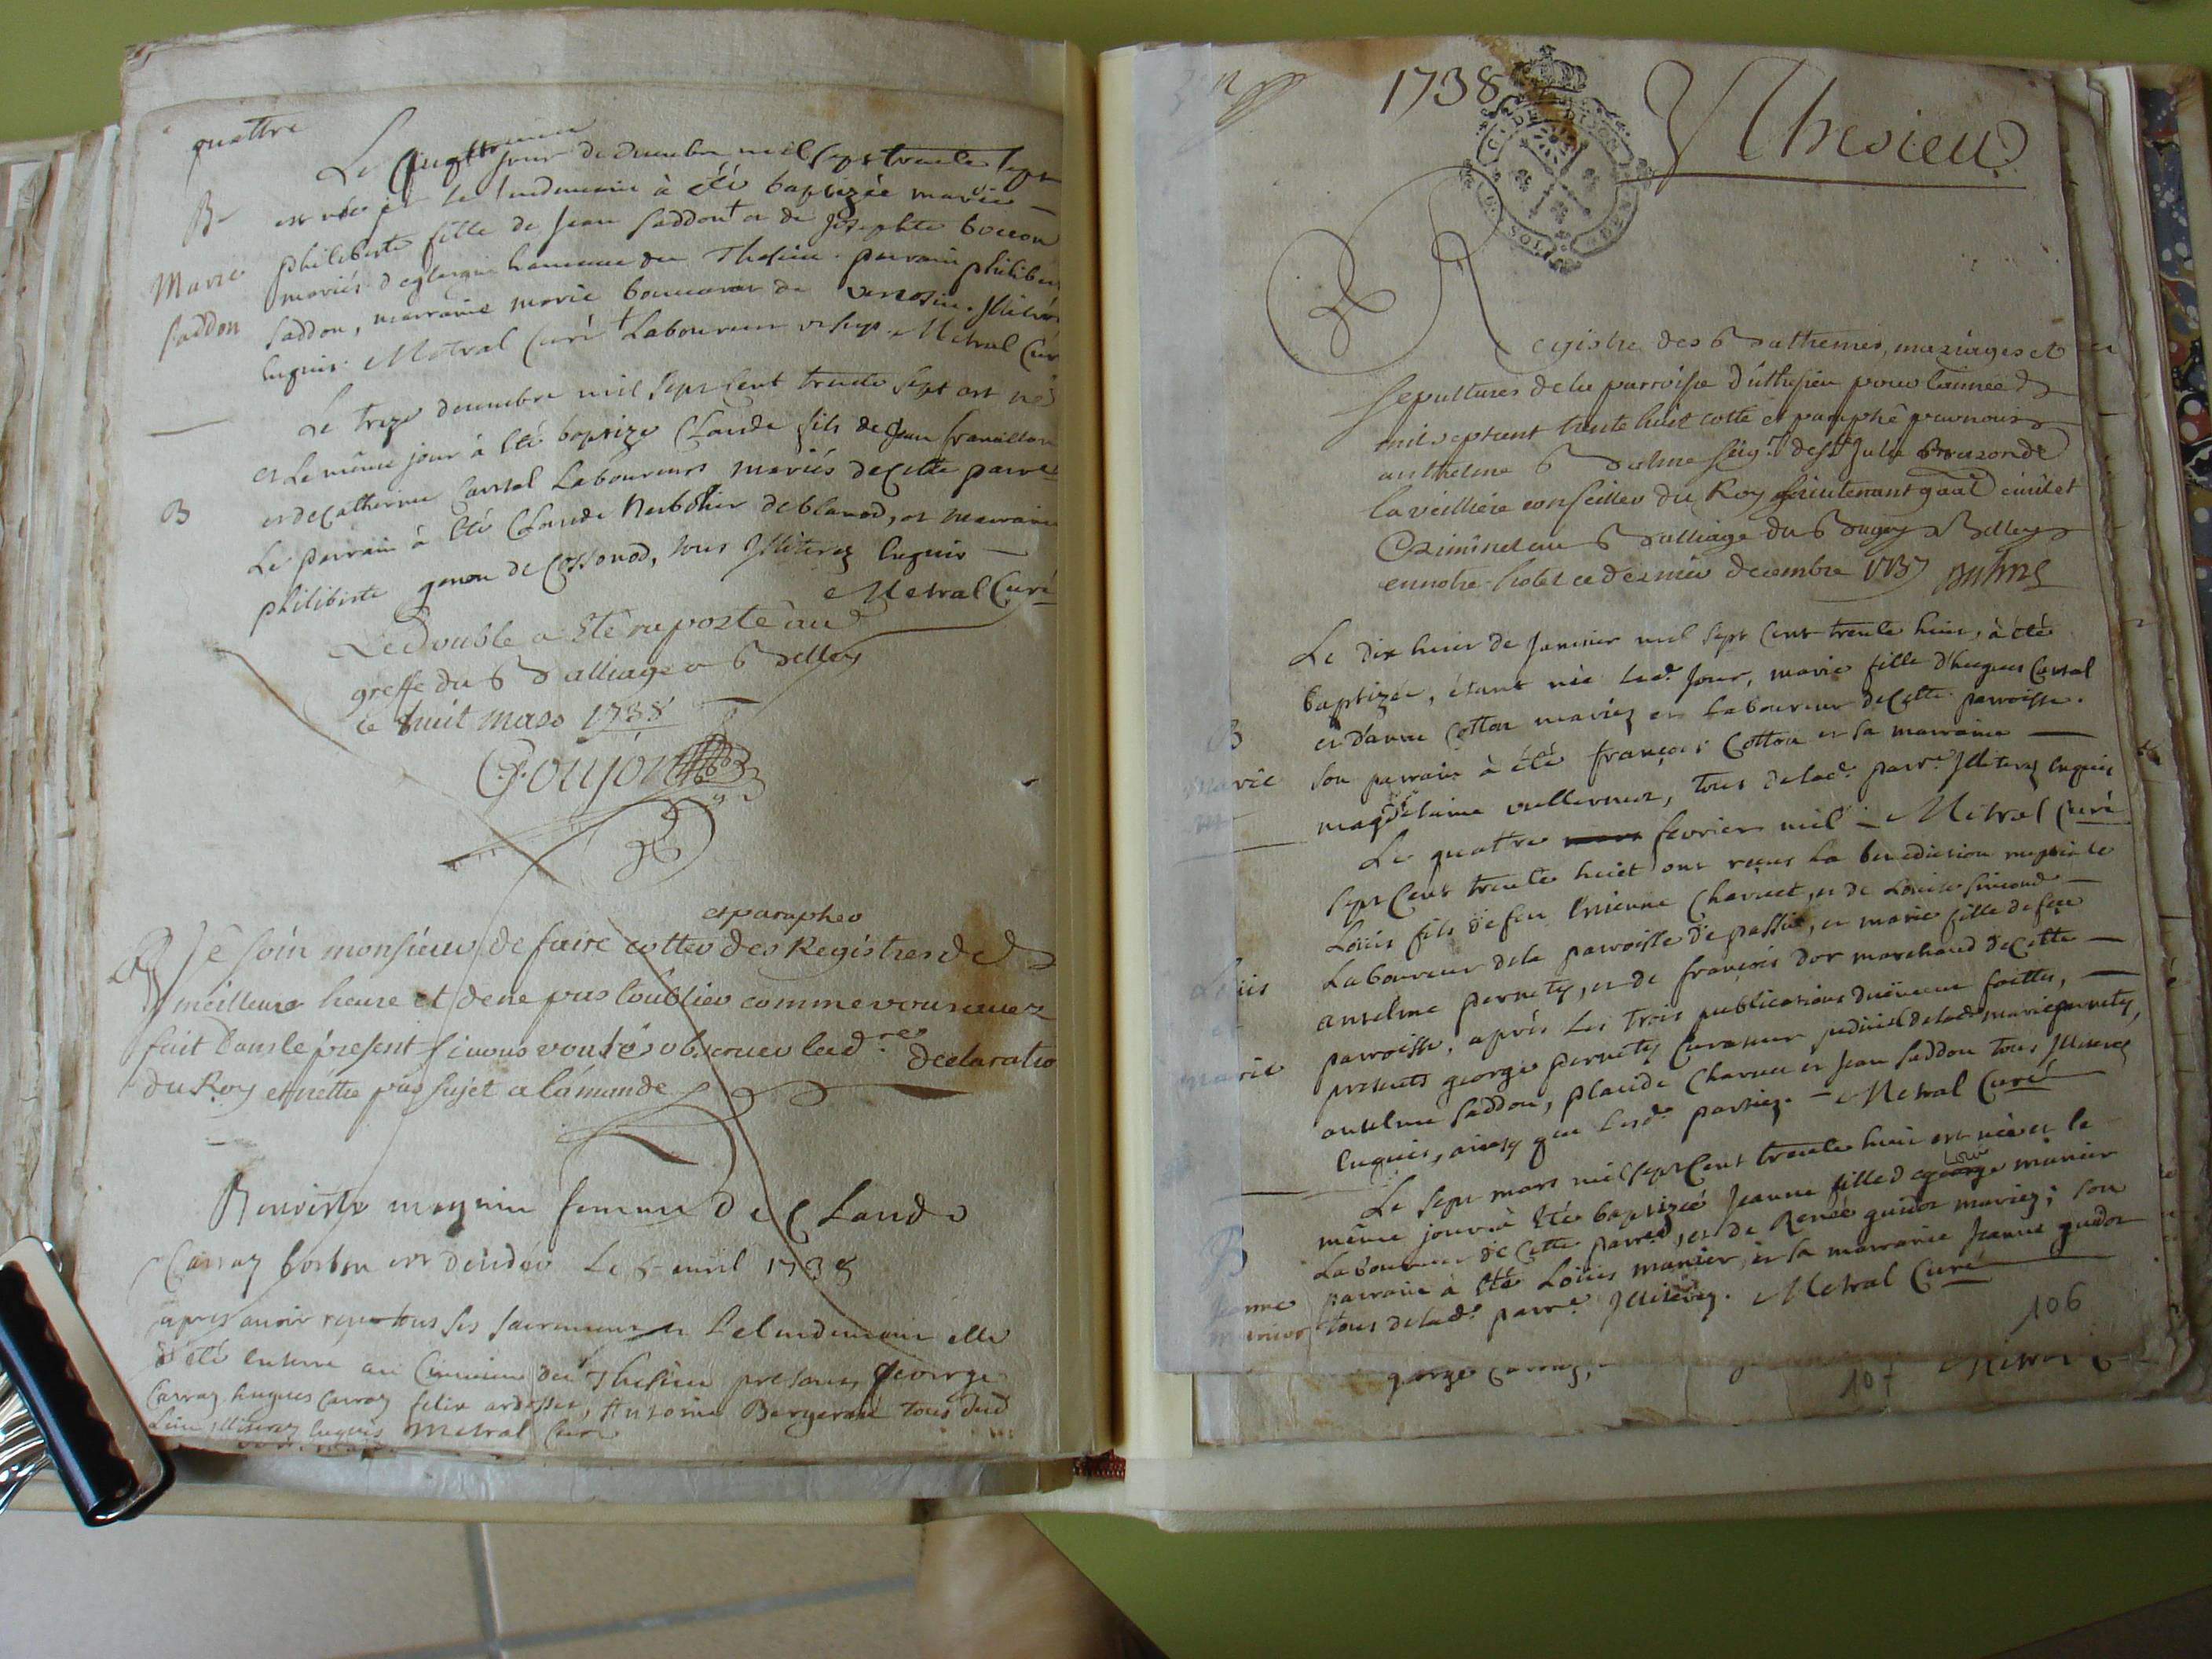 quattre
Le quattrieme
jour de decembre mil sept trente sept
est née et le lendemain à été baptizée marie
B
philiberte fille de jean saddon et de josephte boccon
Marie
mariés d'eglergni hameau du Thesieu. parrain philibert
saddon
saddon, marraine marie de illitérés
enquis. Metral Curé Laboureur Metral Curé
Le treze decembre mil sept cent trente sept est né
et le même jour à été baptizé Claude fils de jean
et de Catherine Carral Laboureurs mariés de cette parre
B
Le parrain à été Claude de blanod, et marraine
philiberte genou de Cossonod, tous illiterez enquis
Metral Curé
Le double a été raporté au
greffe du Balliage a Belley
ce huit mars 1738
Goujon
et parapher
Ayé soin monsieur de faire cotter des Registres de
meilleure heure et de ne pas l'oublier comme vous avez
fait dans le présent si vous voulés observer lad.re
declaratio
du Roy et n'ettre pas sujet a l'amande
Benoiste magnin femme de Claude
Carraz est deudée le 5 avril 1738
apres avoir reçu tous ses sacrements et le lendemain elle
à été enterré au Cimetiere du Thesieu presents george
Carraz hugues Carraz felix, Antoine Bergerat tous dud
Lieu, illiterez enquis Metral Curé
1738
G. DE DIJON
SOL
Ythesieu
Registre des Bathemes, mariages et
Sepultures de la parroisse d'ithesieu pour l'année
mil sept cent trente huit cotté et paraphé par nous
anthelme Balme seig.r de s.te Julie Brazon de
la veilliere conseiller du Roy Lieutenant gnal civil et
Criminel au Balliage du Bugey a Belley
en notre hotel ce dernier decembre 1737 Balme
Le dix huit de Janvier mil sept cent trente huit, à été
baptizée, étant née led. jour, marie fille d'hugues Carral
B
et d'anne Cotton mariez et Laboureur de cette parroisse.
Marie
son parrain à été françois Cotton et sa marraine
magdelaine vuillermez, tous de lad. parr.e illiterez enquis
Le quatre fevrier mil Metral Curé
sept cent trente huict ont reçus La benediction nuptiale
Louis fils de feu Etienne Charvet, et de Louise simond
Laboureur de la parroisse de passin, et marie fille de feu
Louis
anselme pernety, et de françois d'or marchand de cette
et
parroisse, après les trois publications duëment faittes,
marie
presents george pernety Curateur judiciel de lad. marie pernety,
anselme saddon, plaude Charvet et Jean saddon tous illiterez
enquis, ainsy que lesd. parties. Metral Curé
Le sept mars mil sept cent trente huit est née et le
Louis
même jour à été baptizée Jeanne fille d george manier
B
Laboureur de cette parre, et de Renée guidoz mariez; son
Jeanne
parrain à été Loüis manier, et sa marraine Jeanne guidoz
manier
tous de lad. parr.e illiterez. Metral Curé
106
george Carraz,
107
Metral C